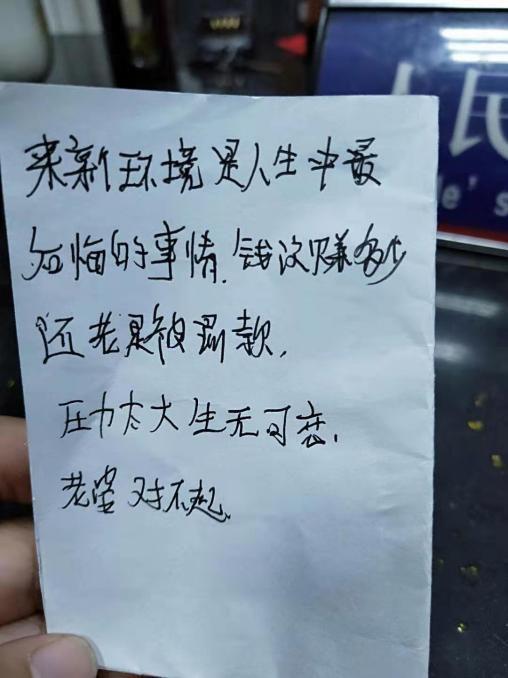 来新环境是人生中最
后悔的事情.钱没赚多少
还老是被罚款.
压力太大生无可恋.
老婆对不起.
人民
le's